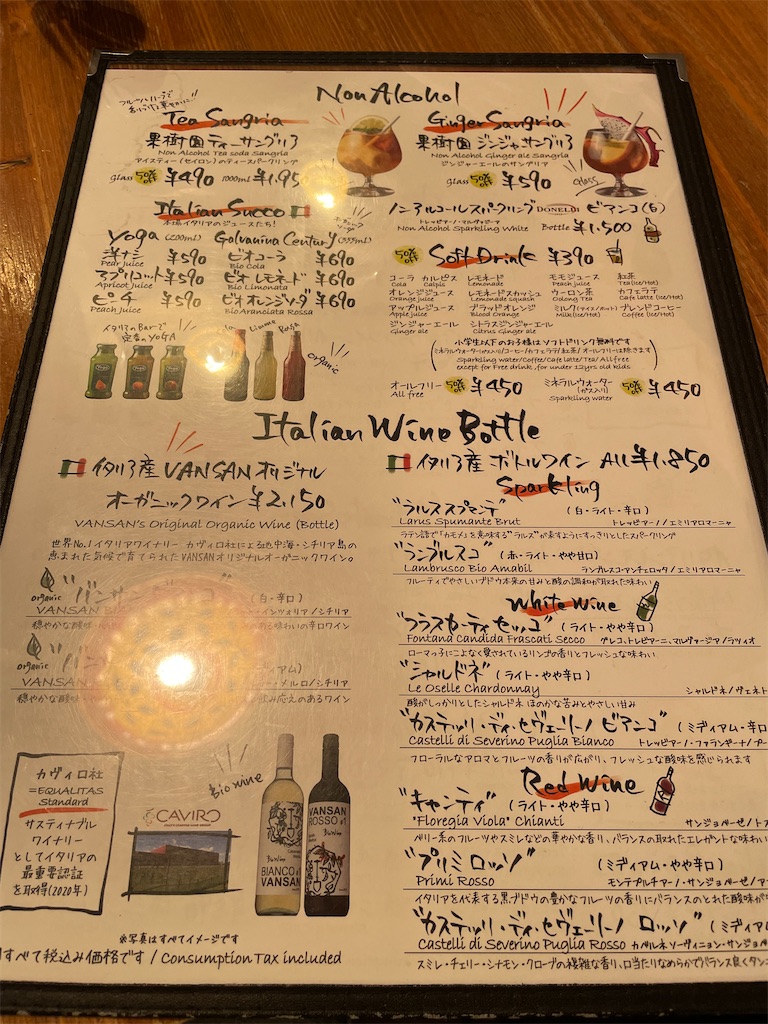 Non Alcohol
Tea Sangria
果樹園ティーサングリア
Non Alcohol Tea soda Sangria
アイスティー(セイロン)のティースパークリング
Glass 50%OFF ¥490 1000ml ¥1,95
Ginger Sangria
果樹園ジンジャサングリア
Non Alcohol Ginger ale Sangria
ジンジャーエールのサングリア
Glass 50%OFF ¥590
Glass
Italian Succo
本場イタリアのジュースたち!
Yoga (200ml)
洋ナシ ¥590
Pear Juice
アプリコット ¥590
Apricot Juice
ピーチ ¥590
Peach Juice
Galvanina Century (355ml)
ビオコーラ ¥690
Bio Cola
ビオレモネード ¥690
Bio Limonata
ビオオレンジソーダ ¥690
Bio Aranciata Rossa
イタリアのBarで
定番のYOGA
organic
ノンアルコールスパークリング DONELLI ビアンコ(6)
トレッビアーノ・マルヴァジーア
Non Alcohol Sparkling White Bottle ¥1,500
50%OFF Soft Drink ¥390
コーラ カルピス レモネード モモジュース 紅茶
Cola Calpis Lemonade Peach juice Tea(ice/Hot)
オレンジジュース レモネードスカッシュ ウーロン茶 カフェラテ
Orange juice Lemonade squash Oolong Tea Cafe latte (ice/Hot)
アップルジュース ブラッドオレンジ ミルク(アイス/ホット) ブレンドコーヒー
Apple juice Blood Orange Milk(ice/Hot) Coffee (ice/Hot)
ジンジャーエール シトラスジンジャーエール
Ginger ale Citrus Ginger ale
小学生以下のお子様はソフトドリンク無料です
(ミネラルウォーター(ガス入り)/コーヒー/カフェラテ/紅茶/オールフリーは除きます
Sparkling water/Coffee/Cafe latte/Tea/All free
except for Free drink ,for under 12yrs old kids
オールフリー 50%OFF ¥450
All free
ミネラルウォーター (ガス入り) 50%OFF ¥450
Sparkling water
Italian Wine Bottle
イタリア産 VANSAN オリジナル
オーガニックワイン ¥2,150
VANSAN's Original Organic Wine (Bottle)
世界No.1イタリアワイナリー カヴィロ社による地中海・シチリア島の
恵まれた気候で育てられたVANSANオリジナルオーガニックワイン。
organic
(白・辛口)
VANSAN
穏やかな酸味
ある味わいの辛口ワイン
organic
VANSAN
メルロ/シチリア
穏やかな酸味
飲み応えのあるワイン
カヴィロ社
=EQUALITAS
Standard
サスティナブル
ワイナリー
としてイタリアの
最重要認証
を取得(2020年)
CAVIRO
Bio wine
BIANCO
VANSAN
VANSAN
ROSSO
※写真はすべてイメージです
すべて税込み価格です / Consumption Tax included
イタリア産 ボトルワイン All ¥1,850
Sparkling
"ラルススプマンテ" (白・ライト・辛口)
Larus Spumante Brut トレッビアーノ/エミリアロマーニャ
ラテン語で「カモメ」を意味する"ラルス"が表すようにすっきりとしたスパークリング
"ランブルスコ" (赤・ライト・やや甘口)
Lambrusco Bio Amabil ランブルスコ・アンチェロッタ/エミリアロマーニャ
フルーティでやさしいブドウ本来の甘みと酸の調和が取れた味わい
White Wine
"フラスカーティセッコ" (ライト・やや辛口)
Fontana Candida Frascati Secco グレコ、トレビアーニ、マルヴァージア/ラツィオ
ローマっ子にこよなく愛されているリンゴの香りとフレッシュな味わい
"シャルドネ" (ライト・やや辛口)
Le Oselle Chardonnay シャルドネ/ヴェネト
酸がしっかりとしたシャルドネ ほのかな苦みとやさしい甘み
"カステッリ・ディ・セヴェリーノ ビアンコ" (ミディアム・辛口
Castelli di Severino Puglia Bianco トレッビアーノ・ファランギーナ/プー
フローラルなアロマとフルーツの香りが広がり、フレッシュな酸味を感じられます
Red Wine
"キャンティ" (ライト・やや辛口)
"Floregia Viola" Chianti サンジョベーゼ/ト
ベリー系のフルーツやスミレなどの華やかな香り、バランスの取れたエレガントな味わい
"プリミロッソ" (ミディアム・やや辛口)
Primi Rosso モンテプルチアーノ・サンジョベーゼ/ア
イタリアを代表する黒ブドウの豊かなフルーツの香りにバランスのとれた酸味が
"カステッリ・ディ・セヴェリーノ ロッソ" (ミディ
Castelli di Severino Puglia Rosso カベルネソーヴィニョン・サンジョベ
スミレ・チェリー・シナモン・クローブの複雑な香り、口当たりなめらかでバランス良くタン